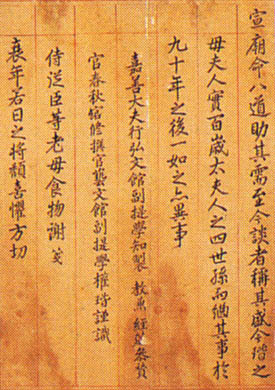 宣廟命八道助其需至今談者稱其盛今瑎之
母夫人實百歲太夫人之四世孫而緬其事於
九十年之後一如之亦異事
嘉善大夫行弘文館副提學知製 教兼經筵參贊
官春秋館修撰官藝文館副提學權瑎謹識
侍從臣等老母食物謝箋
衰年若日之將頹喜懼方切